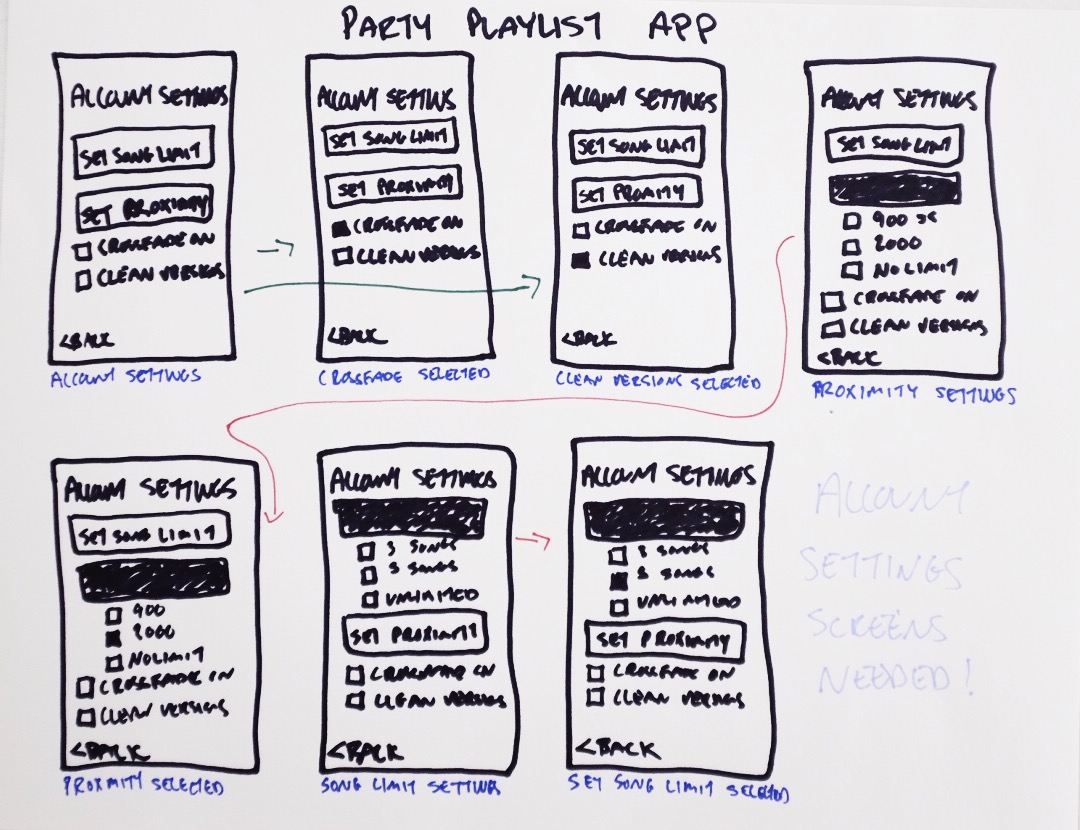 PARTY PLAYLIST APP
ACCOUNT SETTINGS
SET SONG LIMIT
SET PROXIMITY
CROSSFADE ON
CLEAN VERSIONS
<BACK
ACCOUNT SETTINGS
ACCOUNT SETTINGS
SET SONG LIMIT
SET PROXIMITY
CROSSFADE ON
CLEAN VERSIONS
<BACK
CROSSFADE SELECTED
ACCOUNT SETTINGS
SET SONG LIMIT
SET PROMITY
CROSSFADE ON
CLEAN VERSIONS
<BACK
CLEAN VERSIONS SELECTED
ACCOUNT SETTINGS
SET SONG LIMIT
900
2000
NO LIMIT
CROSSFADE ON
CLEAN VERSIONS
<BACK
PROXIMITY SETTINGS
ACCOUNT SETTINGS
SET SONG LIMIT
900
2000
NO LIMIT
CROSSFADE ON
CLEAN VERSIONS
<BACK
PROXIMITY SELECTED
ACCOUNT SETTINGS
SONGS
SONGS
SET PROXIMITY
CROSSFADE ON
CLEAN VERSIONS
<BACK
SONG LIMIT SETTINGS
ACCOUNT SETTINGS
SONGS
SONGS
SET PROXIMITY
CROSSFADE ON
CLEAN VERSIONS
<BACK
SET SONG LIMIT SELECTED
ACCOUNT
SETTINGS
SCREENS
NEEDED!